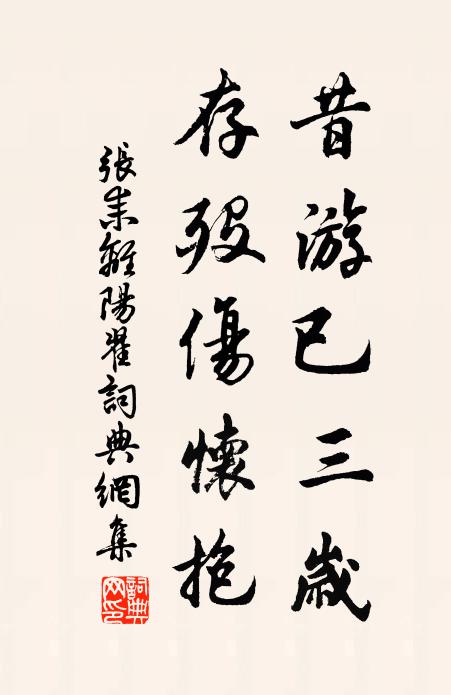 昔游已三歲
存歿傷懷抱
張耒離陽翟詞典網集
詞典網印